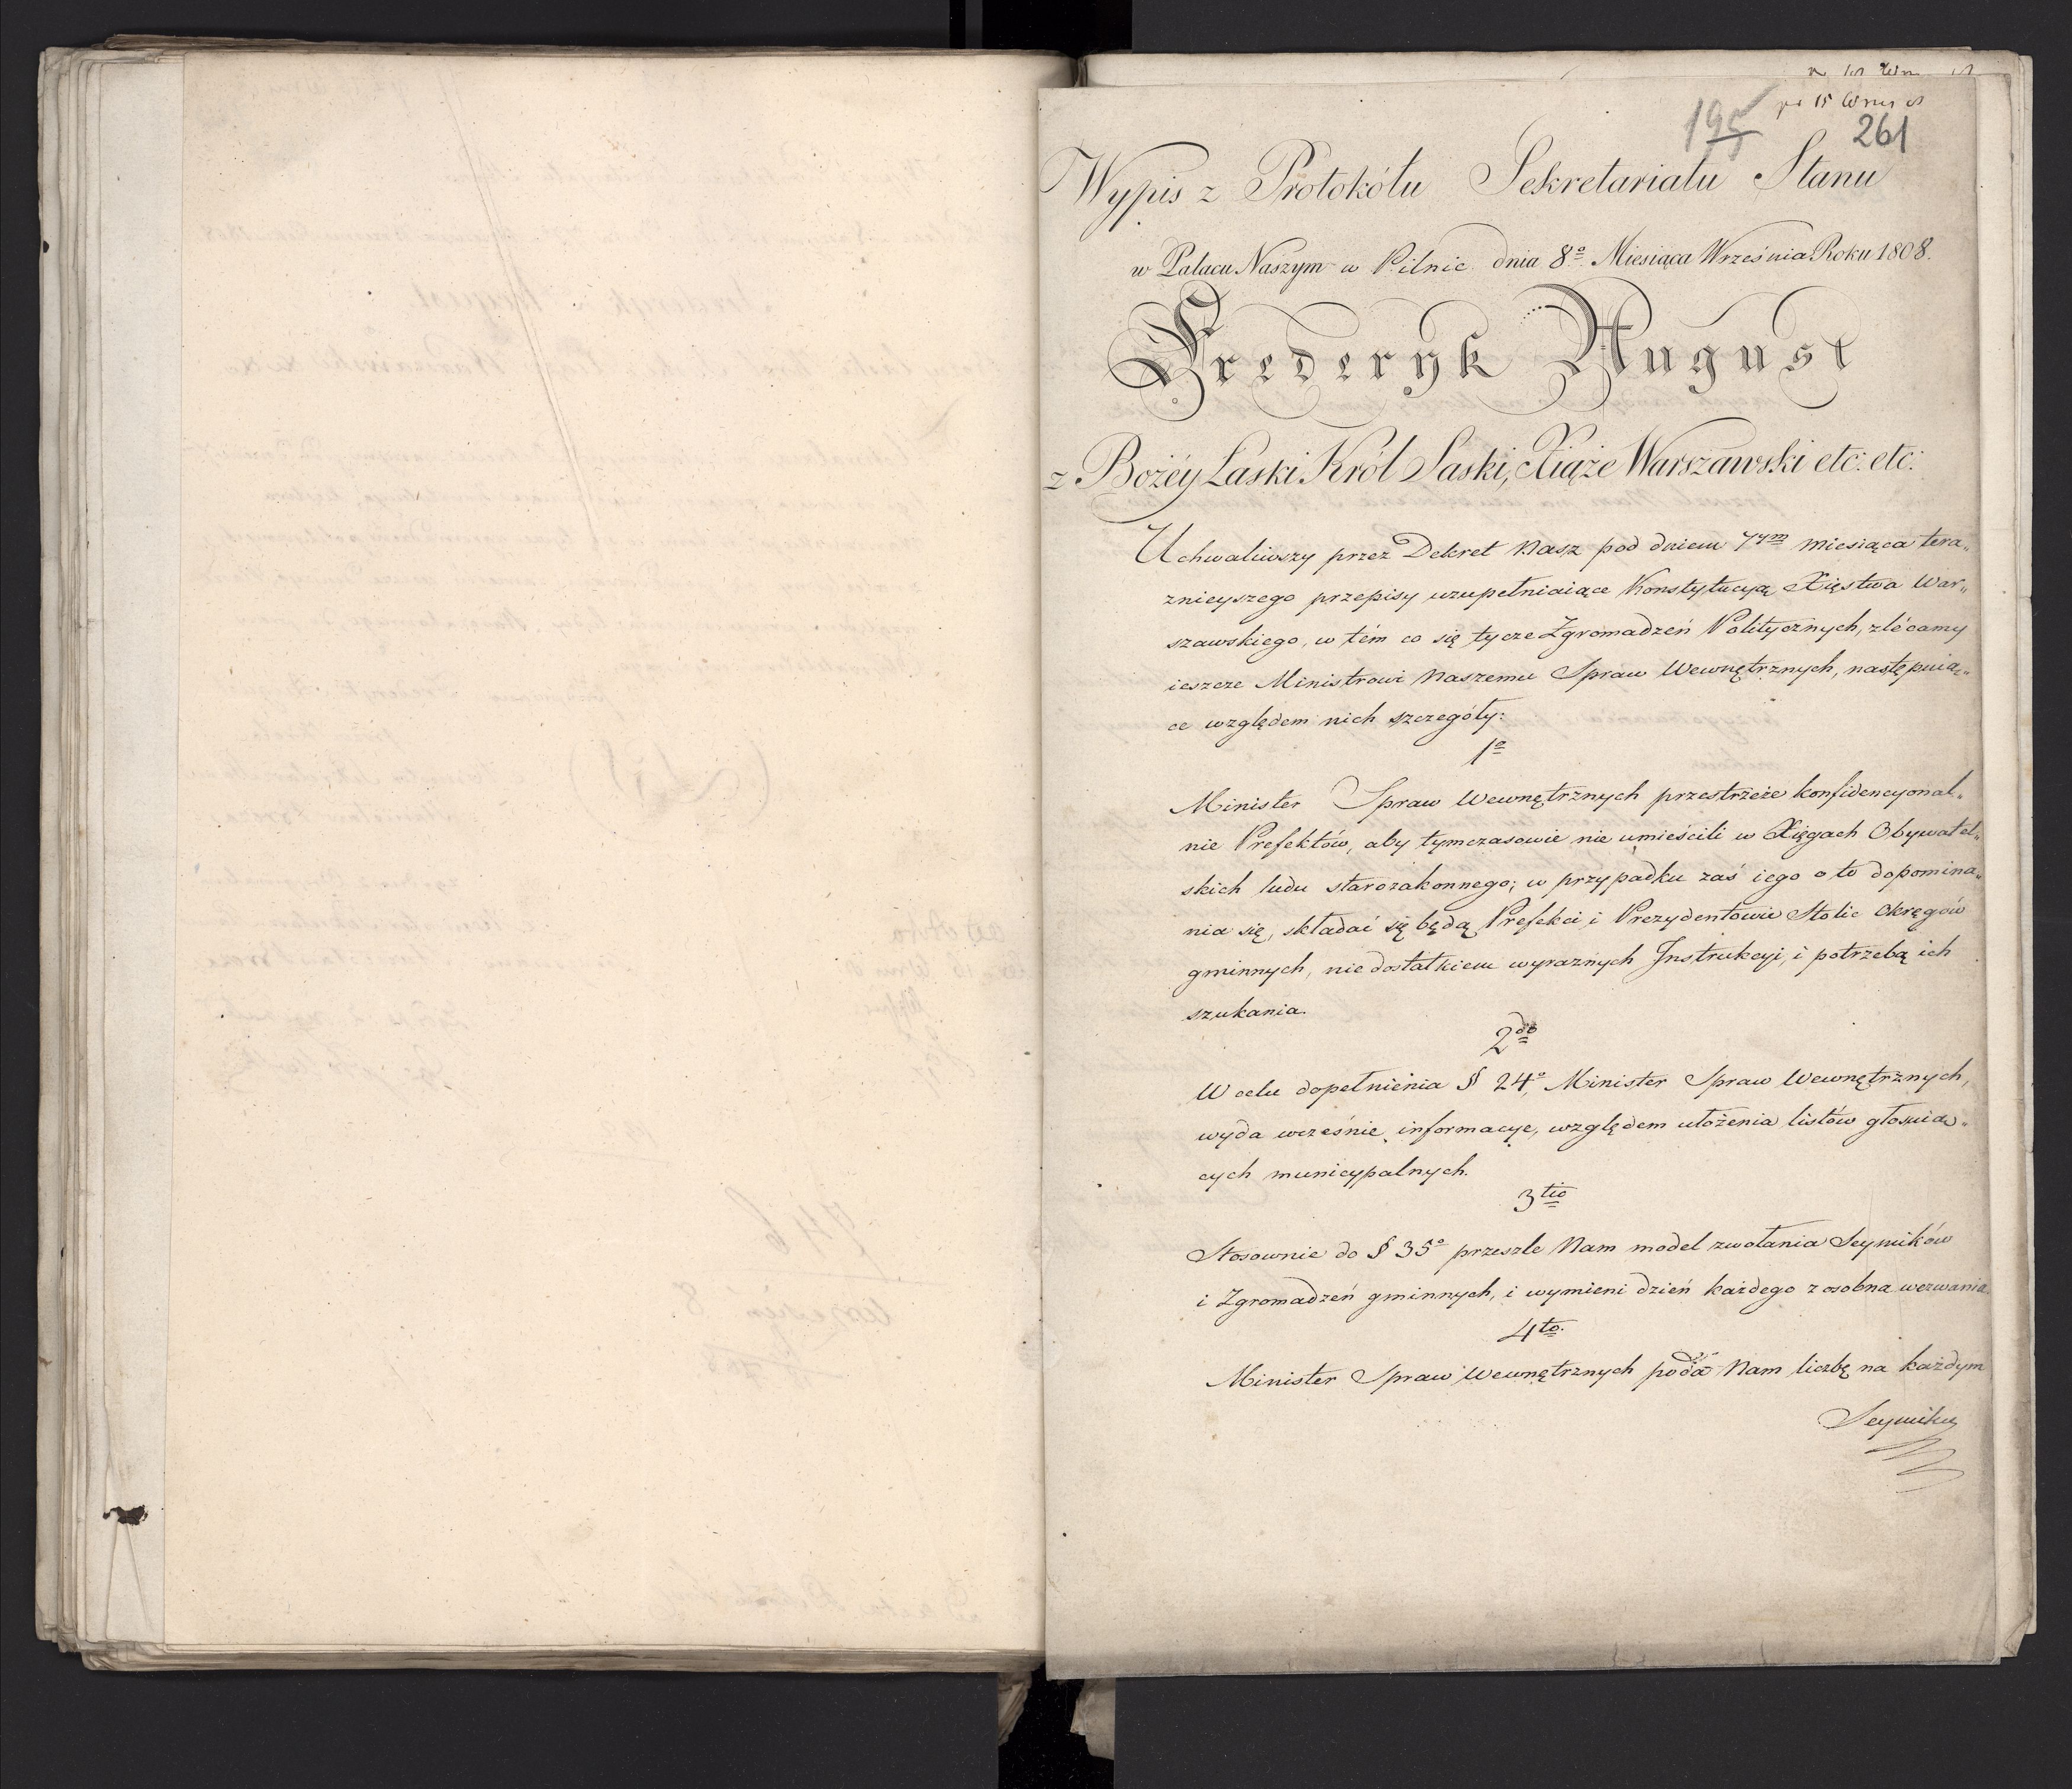 195
261
Wypis z Protokółu Sekretariatu Stanu
w Pałacu Naszym w Pilnic dnia 8º Miesiąca Września Roku 1808.
Frederyk August
z Bożéy Łaski Król Saski, Xiąże Warszawski etc: etc:
Uchwaliwszy przez Dekret Nasz pod dniem 7ym miesiąca tera„
znieyszego przepisy uzupełniaiące Konstytucyą Xięstwa War„
szawskiego, w tém co się tycze Zgromadzeń Politycznych, zlécamy
ieszcze Ministrowi Naszemu Spraw Wewnętrznych, następuią„
ce względem nich szczegóły:
1º
Minister Spraw Wewnętrznych przestrzeże konfidencyonal„
nie Prefektów, aby tymczasowie nie umieścili w Xięgach Obywatel„
skich ludu starozakonnego; w przypadku zaś iego o to dopomina„
nia się, składać się będą Prefekci i Prezydentowie Stolic Okręgów
gminnych, niedostatkiem wyraznych Instrukcyi, i potrzebą ich
szukania.
2do
W celu dopełnienia § 24º, Minister Spraw Wewnętrznych,
wyda wcześnie informacye, względem ułożenia listów głosuią„
cych municypalnych.
3tio
Stosownie do § 35º przeszle Nam model zwołania Seymików
i Zgromadzeń gminnych, i wymieni dzień każdego z osobna wezwania.
4to.
Minister Spraw Wewnętrznych poda Nam liczbę na każdym
Seymiku